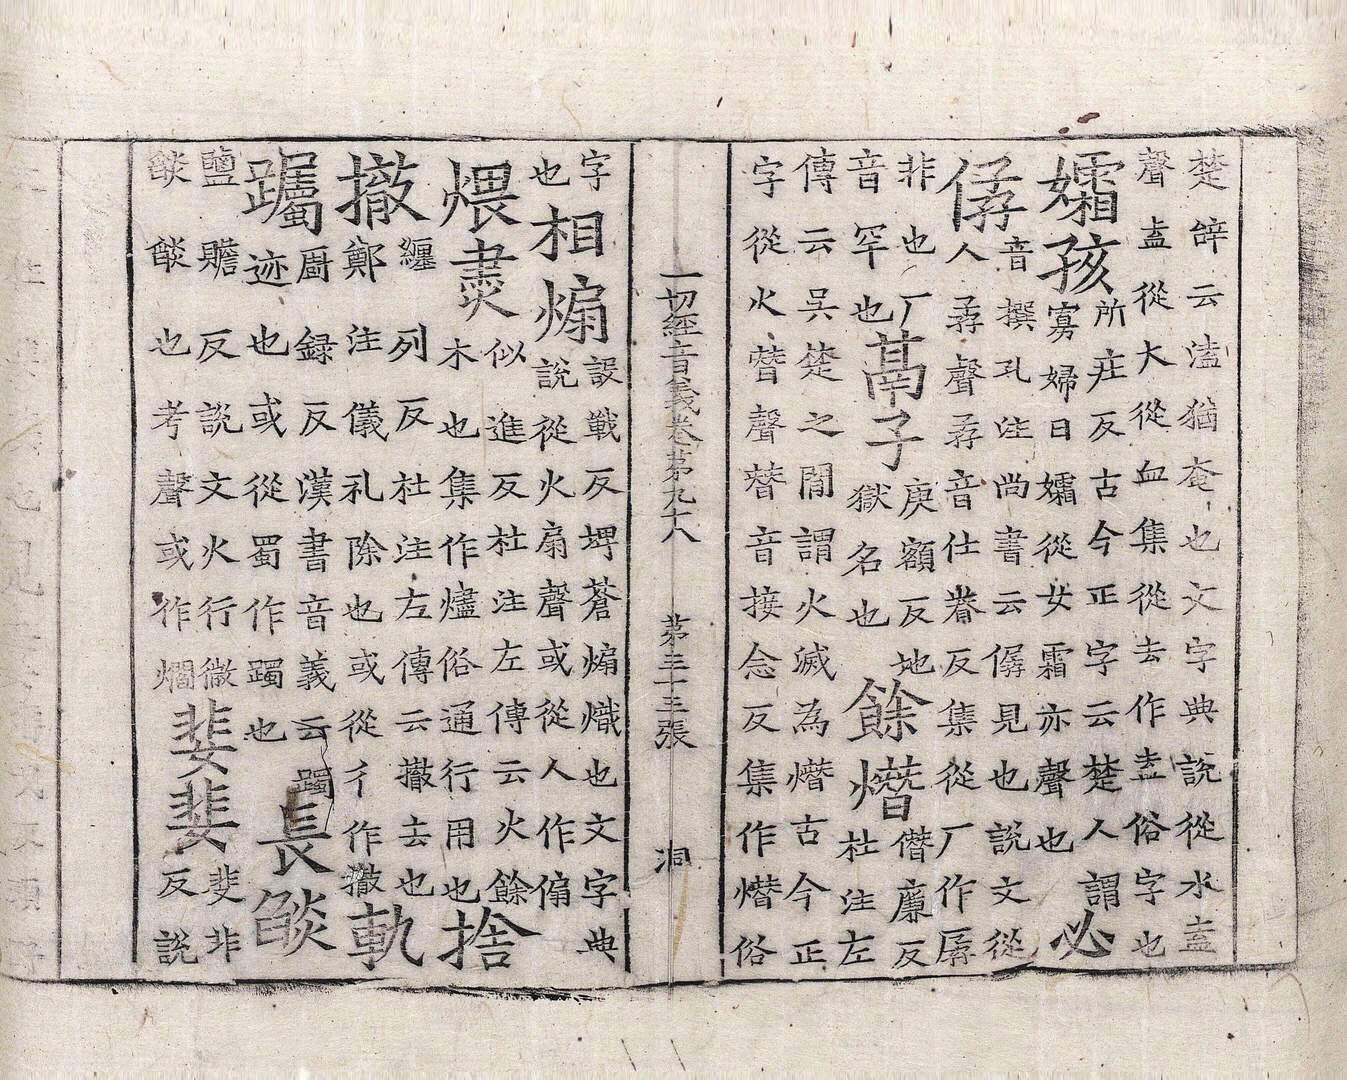 楚辞云溘猶奄也文字典說從水盍
聲盍從大從血集從去作盍俗字也
孀孩
所庄反古今正字云楚人謂
寡婦曰孀從女霜亦聲也
必
㑵
音撰孔注尚書云僝見也說文從
人孨聲孨音仕眷反集從厂作孱
非也厂
音罕也
萵子
庚額反地
獄名也
餘熸
僭廉反
杜注左
傳云吳楚之間謂火滅為熸古今正
字從火朁聲朁音接念反集作熸俗
一切經音義卷第九十八 第三十三張 洞
字
也
相煽
設戰反埤蒼煽熾也文字典
說從火扇聲或從人作偏
煨㶳
似進反杜注左傳云火餘
木也集作燼俗通行用也
捨
撤
纏列反杜注左傳云撤去也
鄭注儀礼除也或從彳作撤
軌
躅
厨録反漢書音義云躅
迹也或從蜀作躅也
長燄
鹽贍反說文火行微
燄燄也考聲或作爓
婓婓
斐非
反說